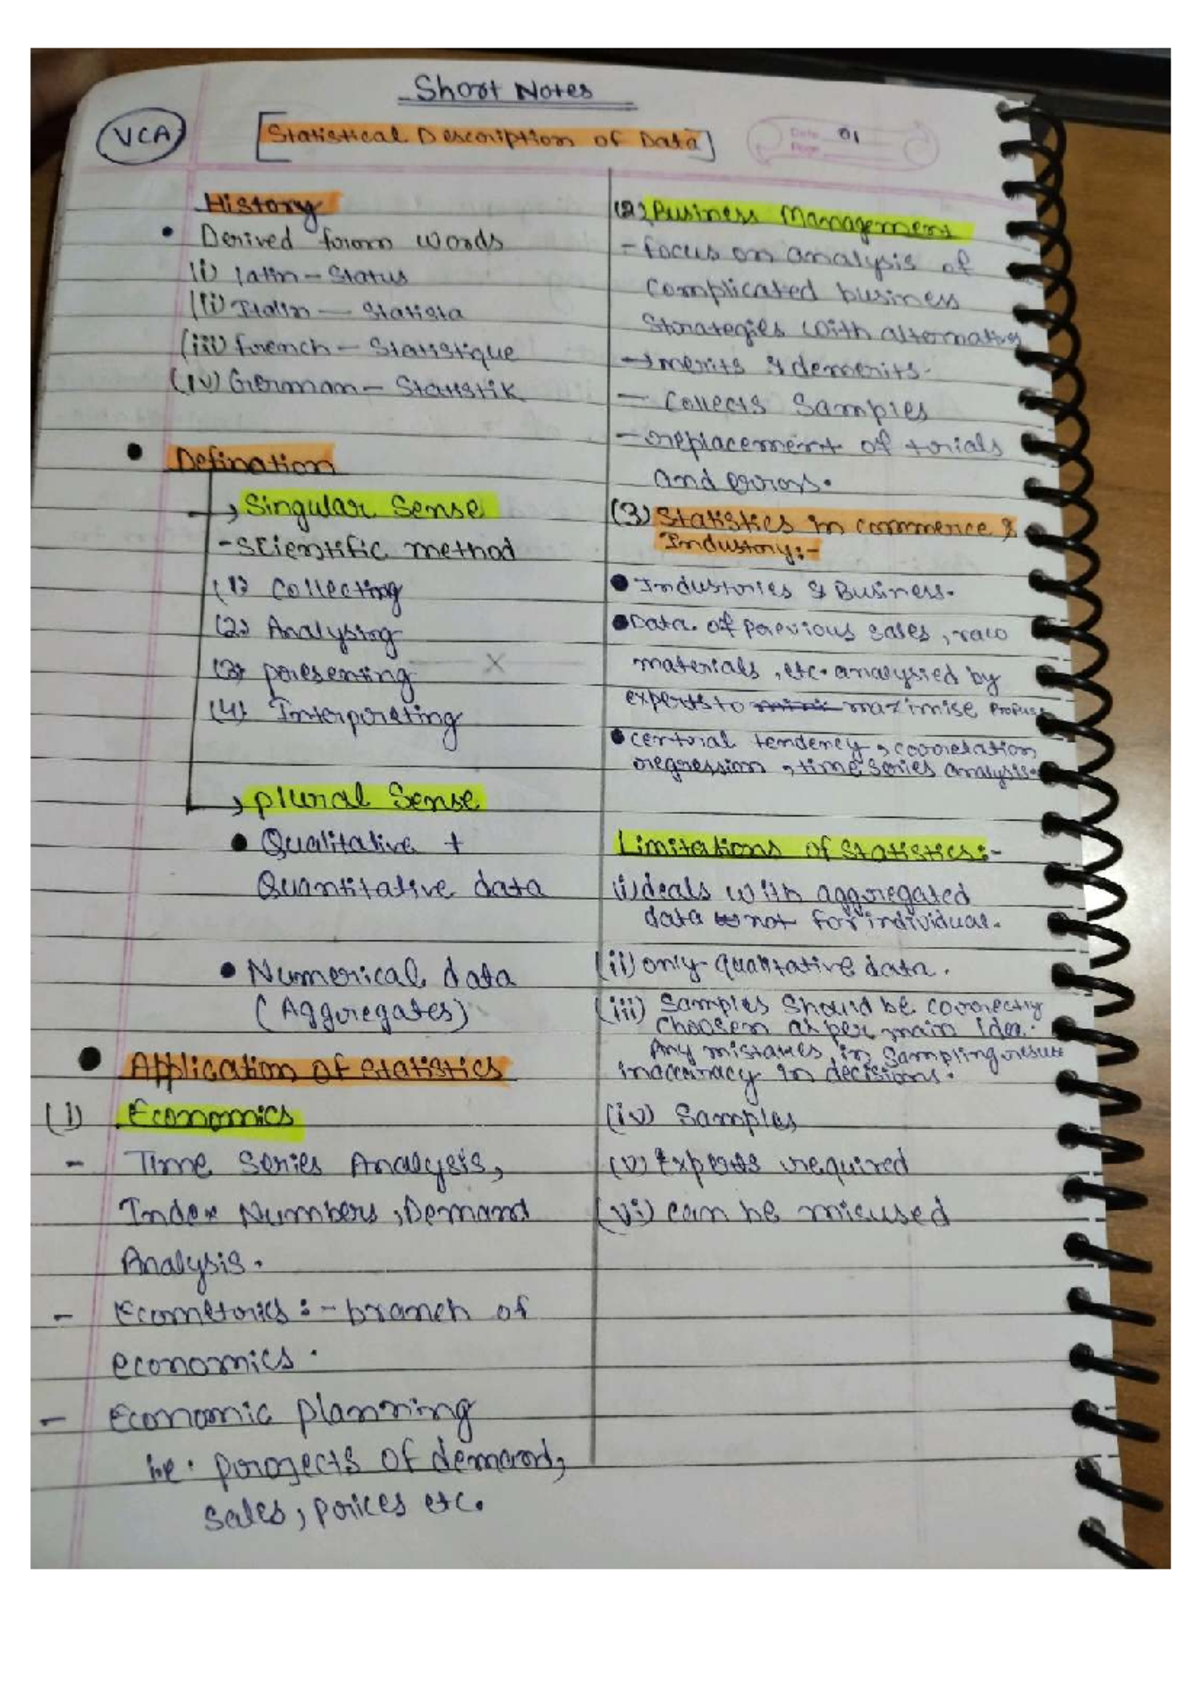 Short Notes
VCA
[Statistical Description of Data]
Date 01
Page
History
• Derived form words
(i) latin - Status
(ii) Italin — Statista
(iii) french - Statistique
(iv) German - Statistik
• Defination
→ Singular Sense
- Scientific method
(1) Collecting
(2) Analysing
(3) presenting — X
(4) Interpreting
→ plural Sense
• Qualitative +
Quantitative data
• Numerical data
(Aggregates)
• Application of statistics
(1) Economics
- Time Series Analysis,
Index Numbers, Demand
Analysis.
- Ecometrics :- branch of
economics.
- Economic planning
i.e. projects of demand,
sales, prices etc.
(2) Business Management
- focus on analysis of
complicated business
Strategies with alternatives
→ merits & demerits.
- Collects Samples
- replacement of trials
and errors.
(3) Statistics in commerce &
Industry:-
• Industries & Business.
• Data. of previous sales, raw
materials, etc. analysied by
experts to maximise
• central tendency, correlation,
regression, time series analysis.
Limitations of statistics:-
(i) deals with aggregated
data not for individual.
(ii) only quantative data.
(iii) Samples Should be correctly
choosen as per main idea.
Any mistakes in sampling result
inaccuracy in decisions.
(iv) Samples
(v) Experts required
(vi) can be misused